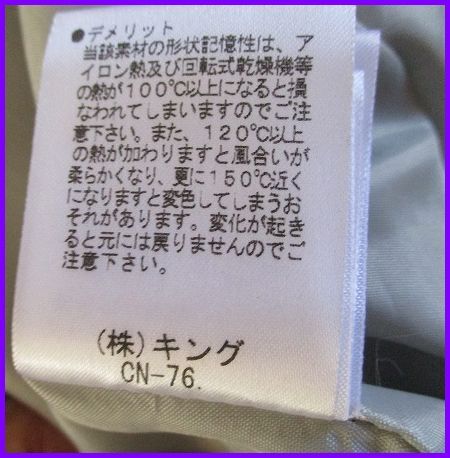 ●デメリット
当該素材の形状記憶性は、ア
イロン熱及び回転式乾燥機等
の熱が100℃以上になると損
なわれてしまいますのでご注
意下さい。また、120℃以上
の熱が加わりますと風合いが
柔らかくなり、更に150℃近く
になりますと変色してしまうお
それがあります。変化が起き
ると元には戻りませんのでご
注意下さい。
(株)キング
CN-76.